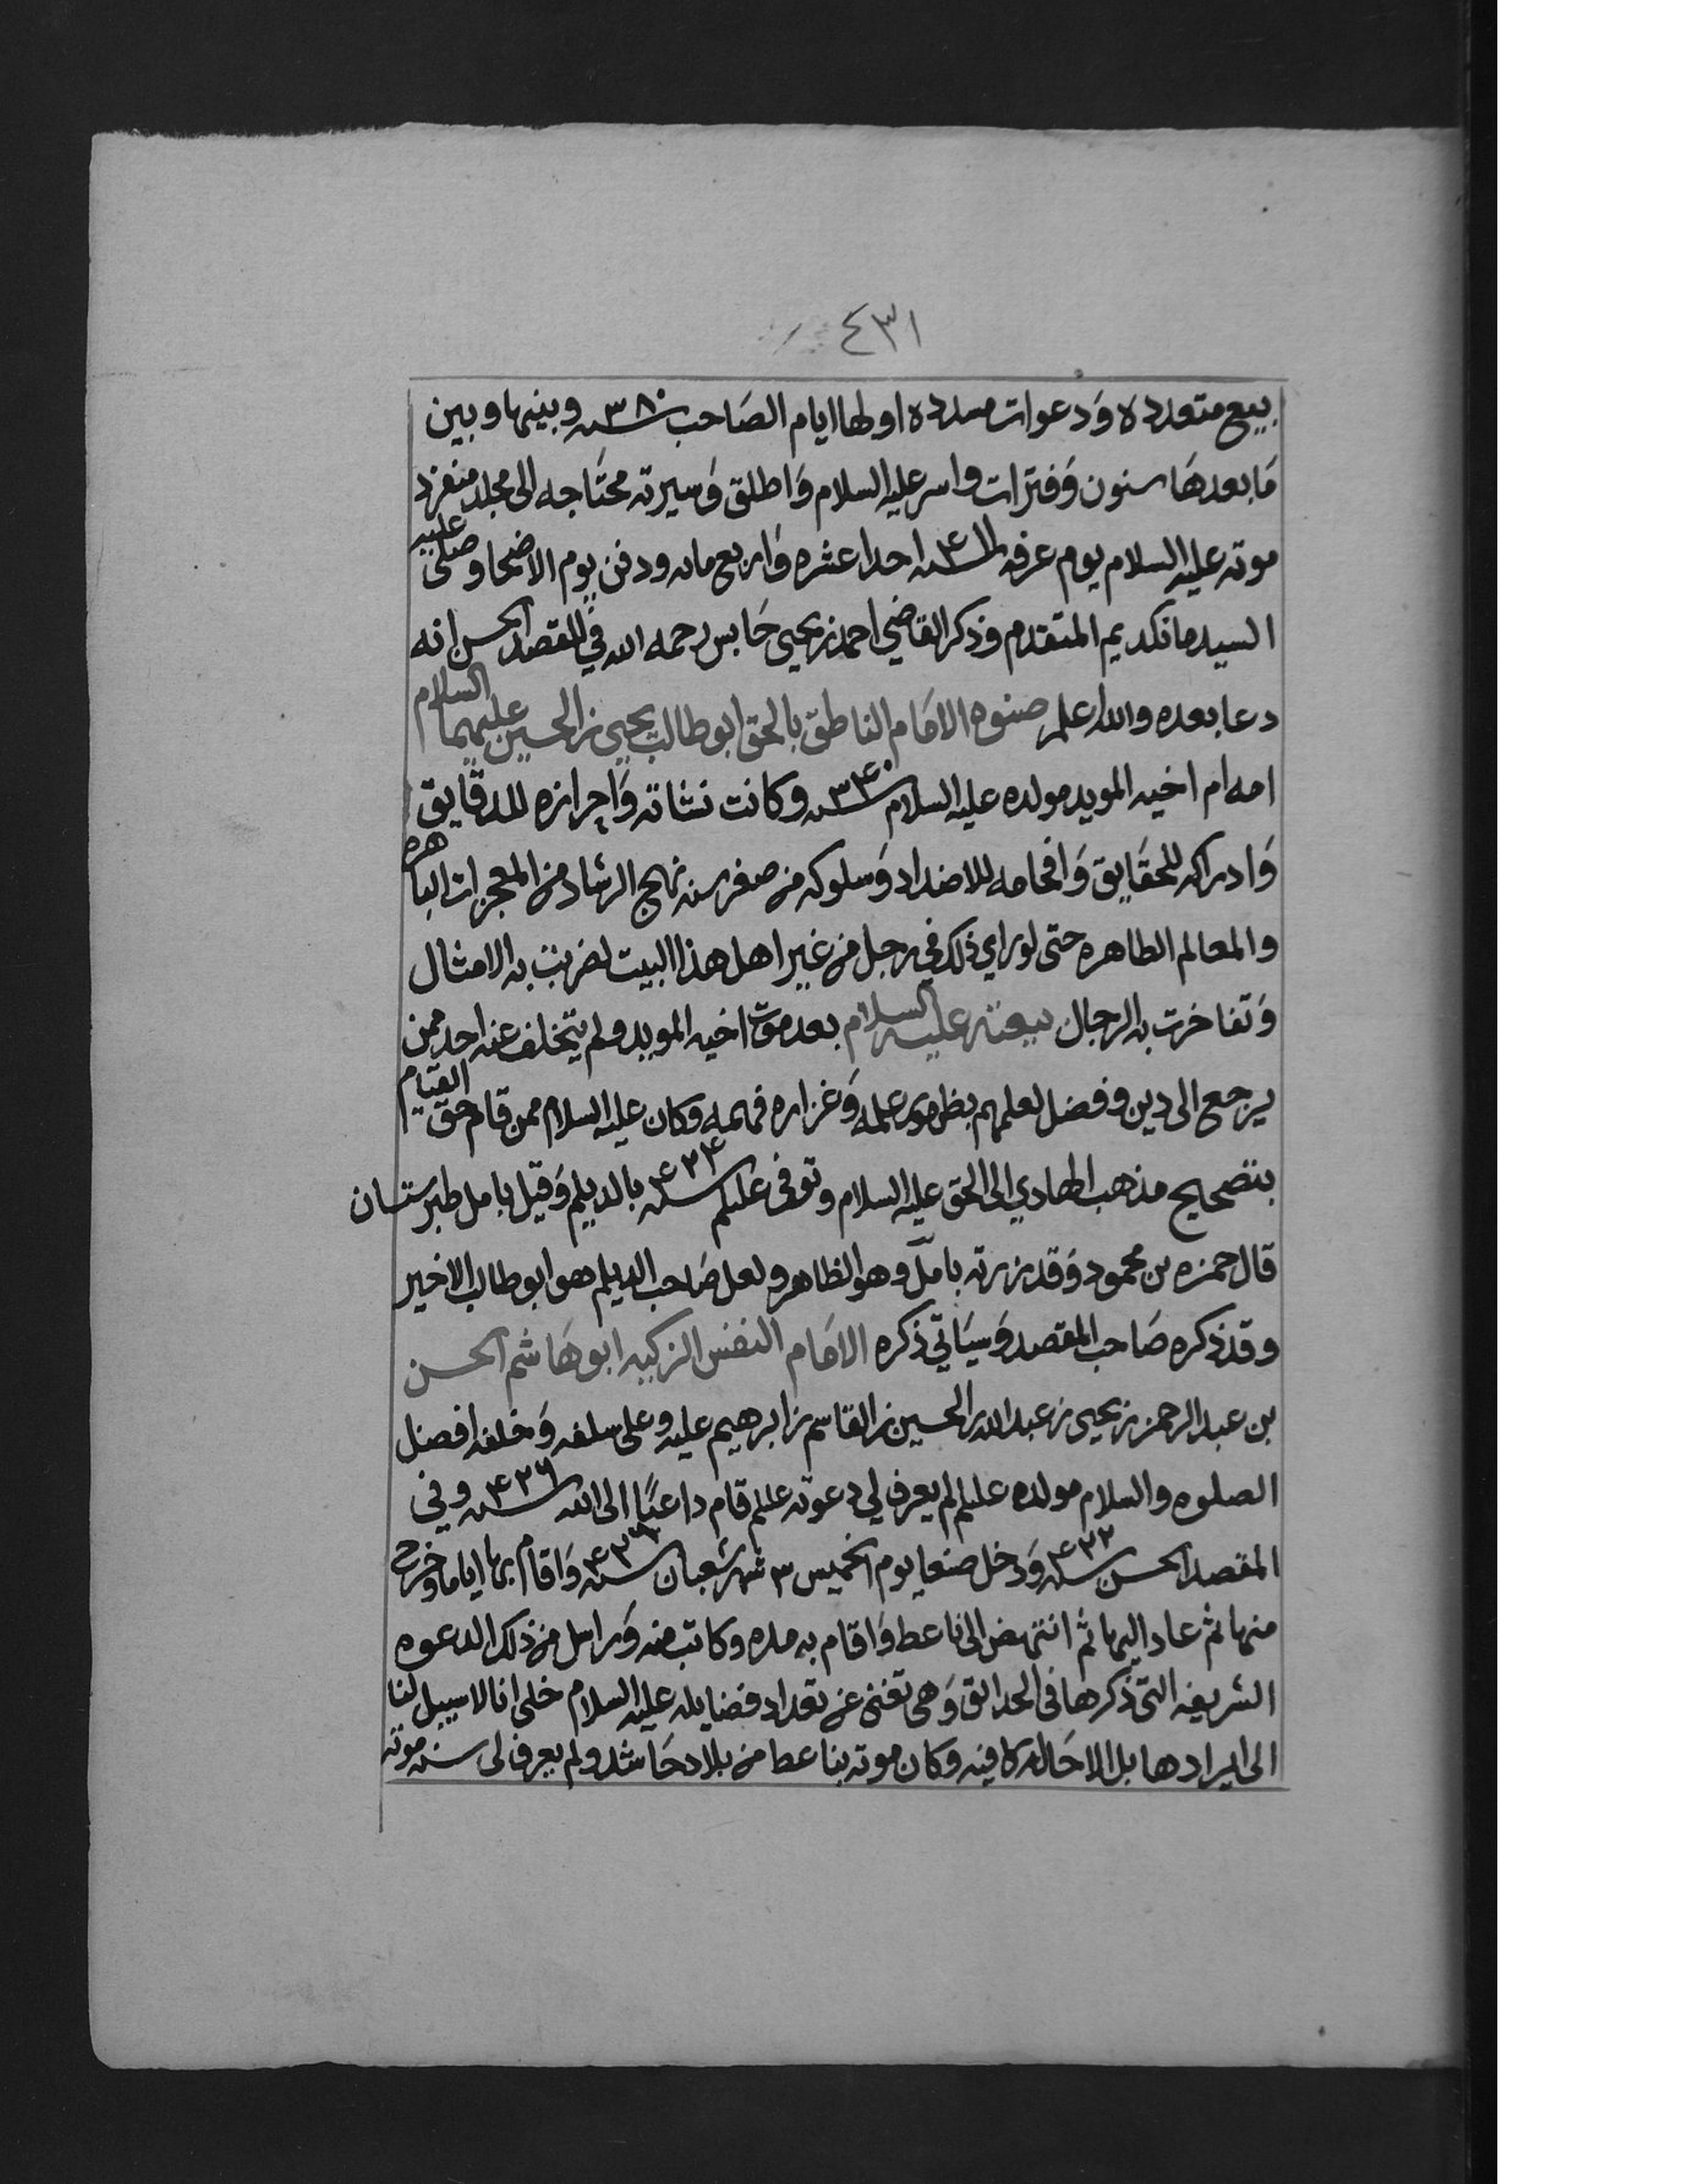 ٤٣١
بيع متعدده وَدعوات مسدده اولها ايام الصَاحب سنه ٣٨٠ وبينها وبين
مَا بعدهَا سنون وَفترات واسر عليه السلام وَاطلق وَسيرته محتَاجه الى مجلد منفرد
موته عليه السلام يوم عرفه سنه ٤١١ احدا عشره وَاربع مايه ودفن يوم الاضحا وصلى عليه
السيد مانكديم المتقدم وذكر القاضي احمد بن يحيى حَابس رحمه الله في المقصد الحسن انه
دعا بعده والله اعلم صنوه الامَام الناطق بالحق ابو طالب يحيى بن الحسين عليهما السلام
امه ام اخيه المويد مولده عليه السلام سنه ٣٤٠ وكانت نشاته وَاحرازه للدقَايق
وَادراكه للحقَايق وَافحامه للاضداد وَسلوكه من صغر سنه نهج الرشاد من المعجزات الباهره
والمعالم الظاهره حتى لو راي ذلك في رجل من غير اهل هذا البيت لضربت به الامثال
وَتفاخرت به الرجال بيعته عليه السلام بعد موت اخيه المويد ولم يتخلف عنه احد ممن
يرجع الى دين وفضل لعلمهم بظهور علمه وَغزاره فهمه وكان عليه السلام ممن قام حق القيام
بتصحيح مذهب الهادي الى الحق عليه السلام وتوفى علىلم سنه ٤٢٤ بالديلم وَقيل بامل طبرستان
قال حمزه بن محمود وَقد زرته بامل وهو الظاهر ولعل صَاحب الديلم هو ابو طالب الاخير
وقد ذكره صَاحب المقصد وَسيَاتي ذكره الامَام النفس الزكيه ابو هَاشم الحسن
بن عبد الرحمن بن يحيى بن عبد الله بن الحسين بن القاسم بن ابرهيم عليه وعلى سلفه وَخلفه افضل
الصلوه والسلام مولده علىلم لم يعرف لي دعوته علىلم قام داعيًا الى الله سنه ٤٢٦ وفي
المقصد الحسن سنه ٤٢٢ وَدخل صنعا يوم الخميس ٣ شهر شعبان سنه ٤٢٦ وَاقام بها اياما وخرج
منها ثم عاد اليها ثم انتهض الى ناعط وَاقام به مده وكاتب منه وَراسل من ذلك الدعوه
الشريفه التي ذكرها في الحدائق وَهي تغني عن تعداد فضايله عليه السلام خلى انا لا سبيل لنا
الى ايرادها بل الاحَاله كافيه وكان موته بناعط من بلاد حَاشد ولم يعرف لي سنه موته